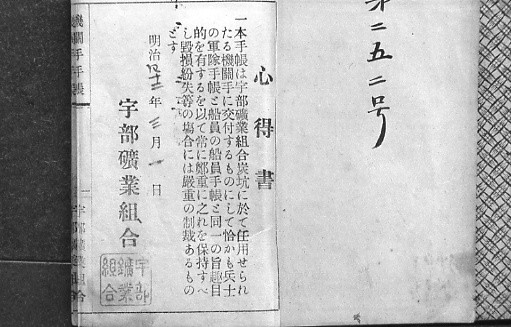 第二五二号
心得書
一本手帳は宇部礦業組合炭坑に於て任用せられ
たる機關手に交付するものにして恰かも兵士
の軍隊手帳と船員の船員手帳と同一の旨趣目
的を有するを以て常に鄭重に之れを保持すべ
し毀損紛失等の塲合には嚴重の制裁あるもの
とす
明治四十二年三月一日
宇部礦業組合
宇部
鑛業
組合
機關手手帳
一
宇部礦業組合